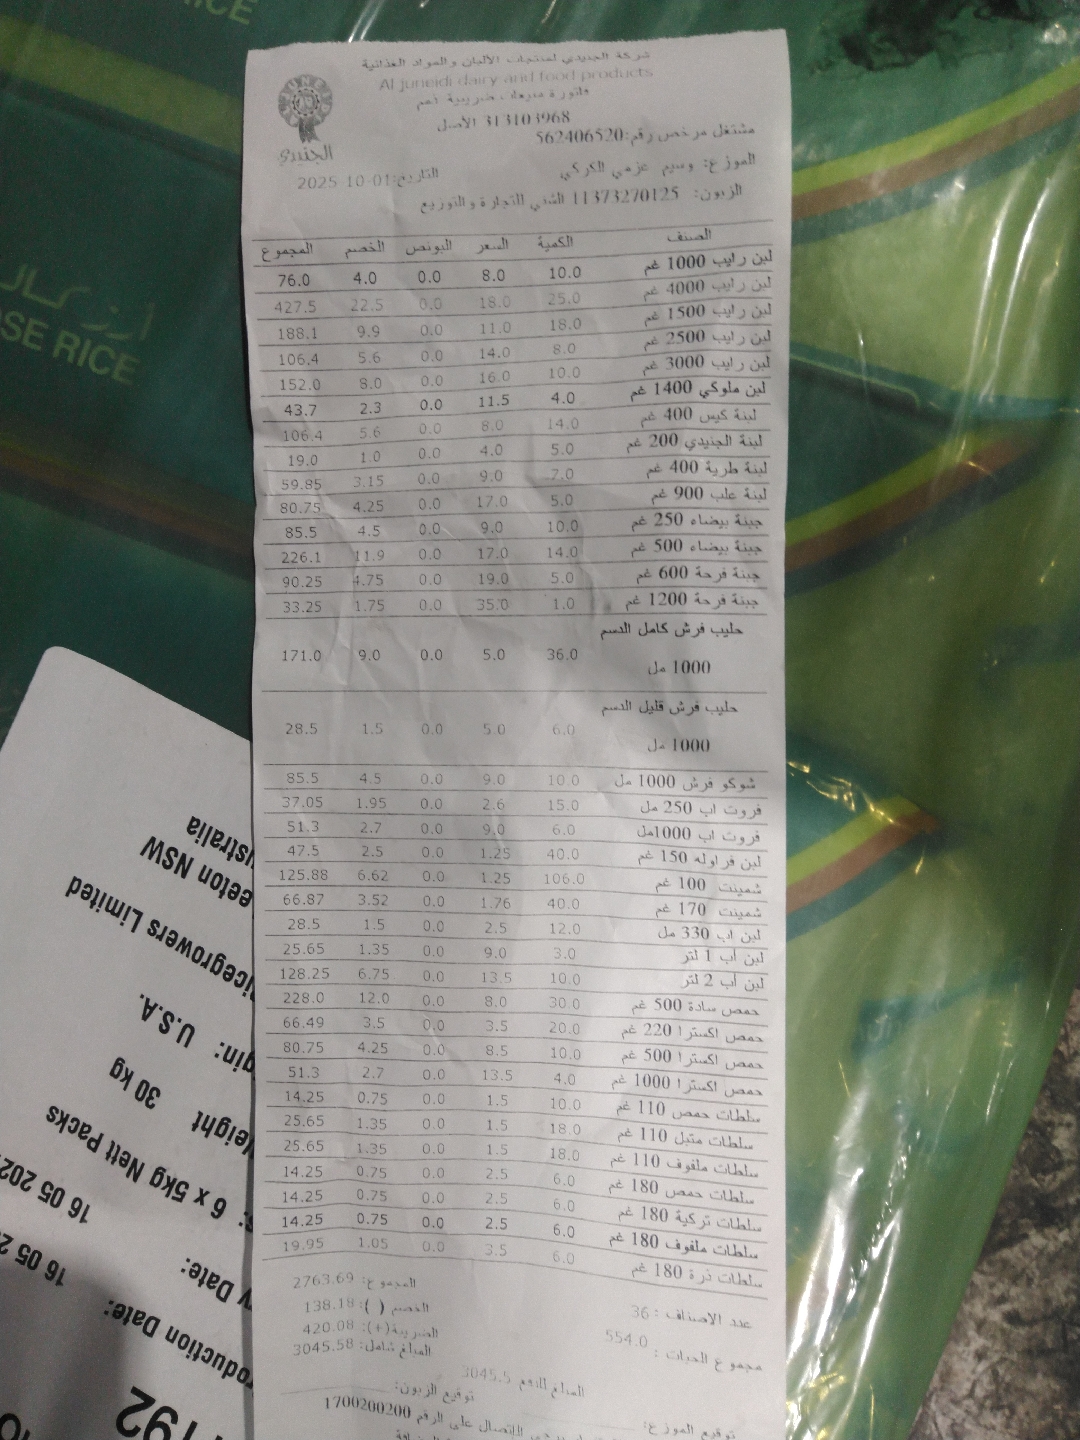 شركة الجنيدي لمنتجات الألبان والمواد الغذائية
Al juneidi dairy and food products
JUNEIDI
الجنيدي
313103968 الأصل
مشتغل مرخص رقم:562406520
الموزع: وسيم عزمي الكركي
التاريخ:2025-10-01
الزبون: 11373270125 الشني للتجارة والتوزيع
الصنف الكمية السعر البونص الخصم المجموع
لبن رايب 1000 غم 10.0 8.0 0.0 4.0 76.0
لبن رايب 4000 غم 25.0 18.0 0.0 22.5 427.5
لبن رايب 1500 غم 18.0 11.0 0.0 9.9 188.1
لبن رايب 2500 غم 8.0 14.0 0.0 5.6 106.4
لبن رايب 3000 غم 10.0 16.0 0.0 8.0 152.0
لبن ملوكي 1400 غم 4.0 11.5 0.0 2.3 43.7
لبنة كيس 400 غم 14.0 8.0 0.0 5.6 106.4
لبنة الجنيدي 200 غم 5.0 4.0 0.0 1.0 19.0
لبنة طرية 400 غم 7.0 9.0 0.0 3.15 59.85
لبنة علب 900 غم 5.0 17.0 0.0 4.25 80.75
جبنة بيضاء 250 غم 10.0 9.0 0.0 4.5 85.5
جبنة بيضاء 500 غم 14.0 17.0 0.0 11.9 226.1
جبنة فرحة 600 غم 5.0 19.0 0.0 4.75 90.25
جبنة فرحة 1200 غم 1.0 35.0 0.0 1.75 33.25
حليب فرش كامل الدسم
1000 مل 36.0 5.0 0.0 9.0 171.0
حليب فرش قليل الدسم
1000 مل 6.0 5.0 0.0 1.5 28.5
شوكو فرش 1000 مل 10.0 9.0 0.0 4.5 85.5
فروت اب 250 مل 15.0 2.6 0.0 1.95 37.05
فروت اب 1000مل 6.0 9.0 0.0 2.7 51.3
لبن فراوله 150 غم 40.0 1.25 0.0 2.5 47.5
شمينت 100 غم 106.0 1.25 0.0 6.62 125.88
شمينت 170 غم 40.0 1.76 0.0 3.52 66.87
لبن اب 330 مل 12.0 2.5 0.0 1.5 28.5
لبن أب 1 لتر 3.0 9.0 0.0 1.35 25.65
لبن أب 2 لتر 10.0 13.5 0.0 6.75 128.25
حمص سادة 500 غم 30.0 8.0 0.0 12.0 228.0
حمص اكسترا 220 غم 20.0 3.5 0.0 3.5 66.49
حمص اكسترا 500 غم 10.0 8.5 0.0 4.25 80.75
حمص اكسترا 1000 غم 4.0 13.5 0.0 2.7 51.3
سلطات حمص 110 غم 10.0 1.5 0.0 0.75 14.25
سلطات متبل 110 غم 18.0 1.5 0.0 1.35 25.65
سلطات ملفوف 110 غم 18.0 1.5 0.0 1.35 25.65
سلطات حمص 180 غم 6.0 2.5 0.0 0.75 14.25
سلطات تركية 180 غم 6.0 2.5 0.0 0.75 14.25
سلطات ملفوف 180 غم 6.0 2.5 0.0 0.75 14.25
سلطات ذرة 180 غم 6.0 3.5 0.0 1.05 19.95
المجموع: 2763.69
عدد الاصناف : 36
الخصم ( ): 138.18
مجموع الحبات : 554.0
الضريبة(+): 420.08
المبلغ شامل: 3045.58
3045.5
توقيع الموزع:
توقيع الزبون:
الإتصال على الرقم 1700200200
أرز كـ
OSE RICE
RICE
ustralia
eeton NSW
icegrowers Limited
gin: U.S.A.
eight 30 kg
6 x 5kg Nett Packs
16 05 202
y Date:
16 05 2
oduction Date:
192